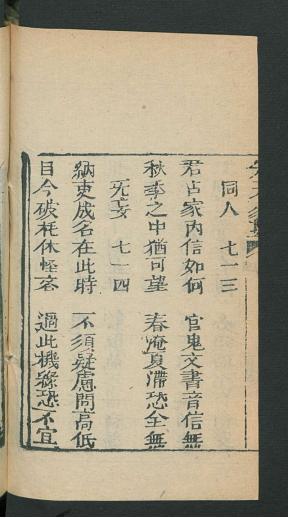 同人　七一三
君占家內信如何　官鬼文書音信無
秋季之中猶可望　春淹夏滯恐全無
无妄　七一四
納吏成名在此時　不須疑慮問高低
目今破耗休恠容　過此機緣恐不宜